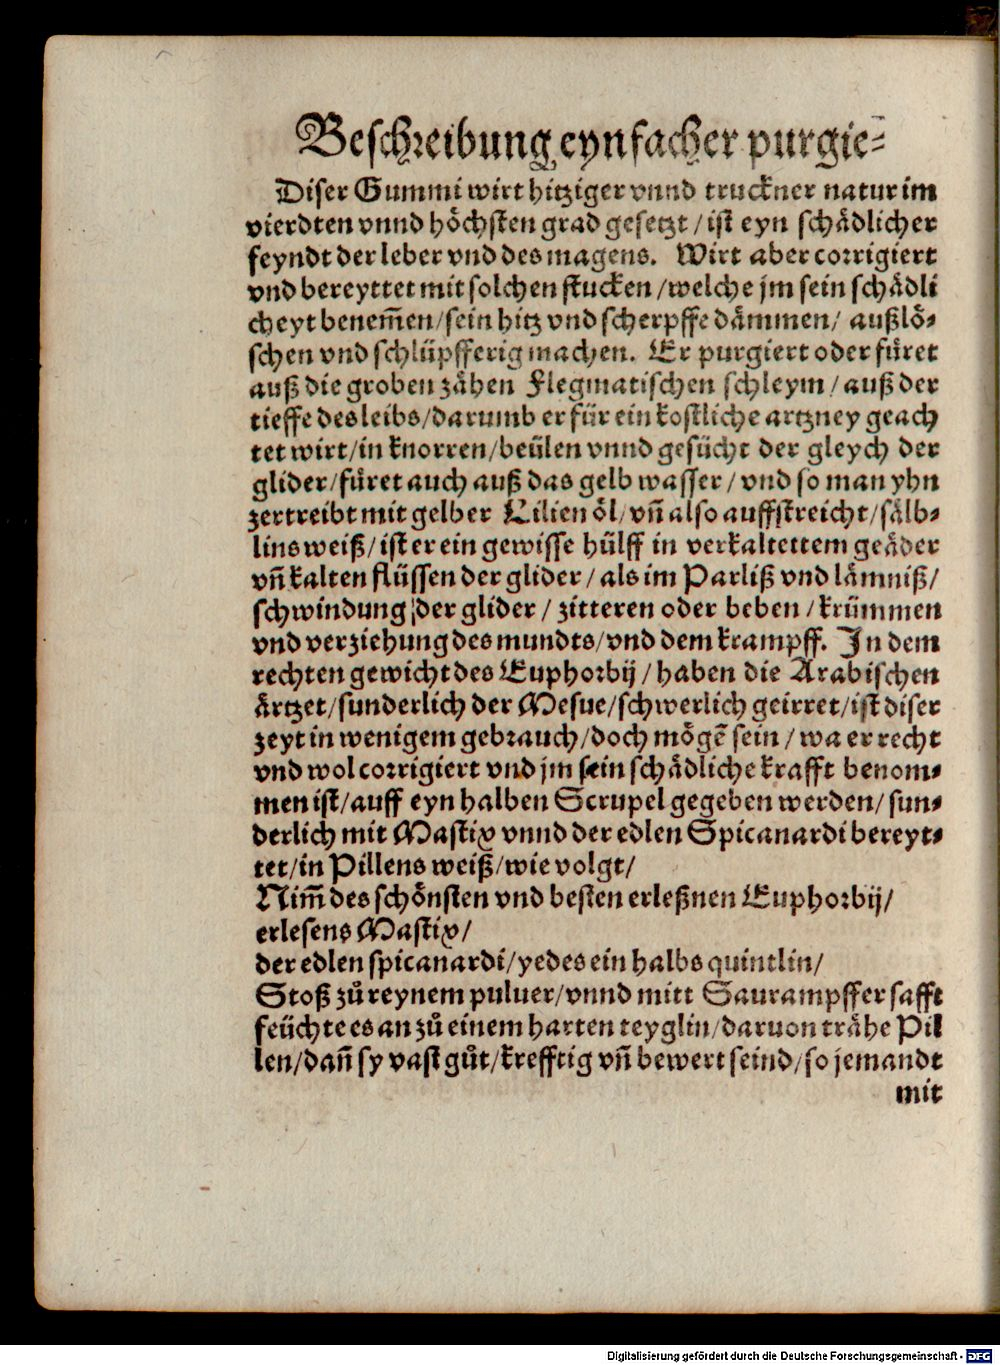 Beschreibung eynfacher purgie⸗
Diser Gummi wirt hitziger vnnd truckner natur im
vierdten vnnd höchsten grad gesetzt / ist eyn schädlicher
feyndt der leber vnd des magens. Wirt aber corrigiert
vnd bereyttet mit solchen stucken / welche jm sein schädli
cheyt benem̃en / sein hitz vnd scherpffe dämmen / außlö⸗
schen vnd schlüpfferig machen. Er purgiert oder füret
auß die groben zähen Flegmatischen schleym / auß der
tieffe des leibs / darumb er für ein kostliche artzney geach
tet wirt / in knorren / beülen vnnd gesücht der gleych der
glider / füret auch auß das gelb wasser / vnd so man yhn
zertreibt mit gelber Lilien öl / vñ also auffstreicht / sälb⸗
lins weiß / ist er ein gewisse hülff in verkaltettem geäder
vñ kalten flüssen der glider / als im Parliß vnd lämniß /
schwindung der glider / zitteren oder beben / krümmen
vnd verziehung des mundts / vnd dem krampff. In dem
rechten gewicht des Euphorbij / haben die Arabischen
ärtzet / sunderlich der Mesue / schwerlich geirret / ist diser
zeyt in wenigem gebrauch / doch mögẽ sein / wa er recht
vnd wol corrigiert vnd jm sein schädliche krafft benom⸗
men ist / auff eyn halben Scrupel gegeben werden / sun⸗
derlich mit Mastix vnnd der edlen Spicanardi bereyt⸗
tet / in Pillens weiß / wie volgt /
Nim̃ des schönsten vnd besten erleßnen Euphorbij /
erlesens Mastix /
der edlen spicanardi / yedes ein halbs quintlin /
Stoß zů reynem puluer / vnnd mitt Saurampffer safft
feüchte es an zů einem harten teyglin / daruon trähe Pil
len / dañ sy vast gůt / krefftig vñ bewert seind / so jemandt
mit
Digitalisierung gefördert durch die Deutsche Forschungsgemeinschaft - DFG